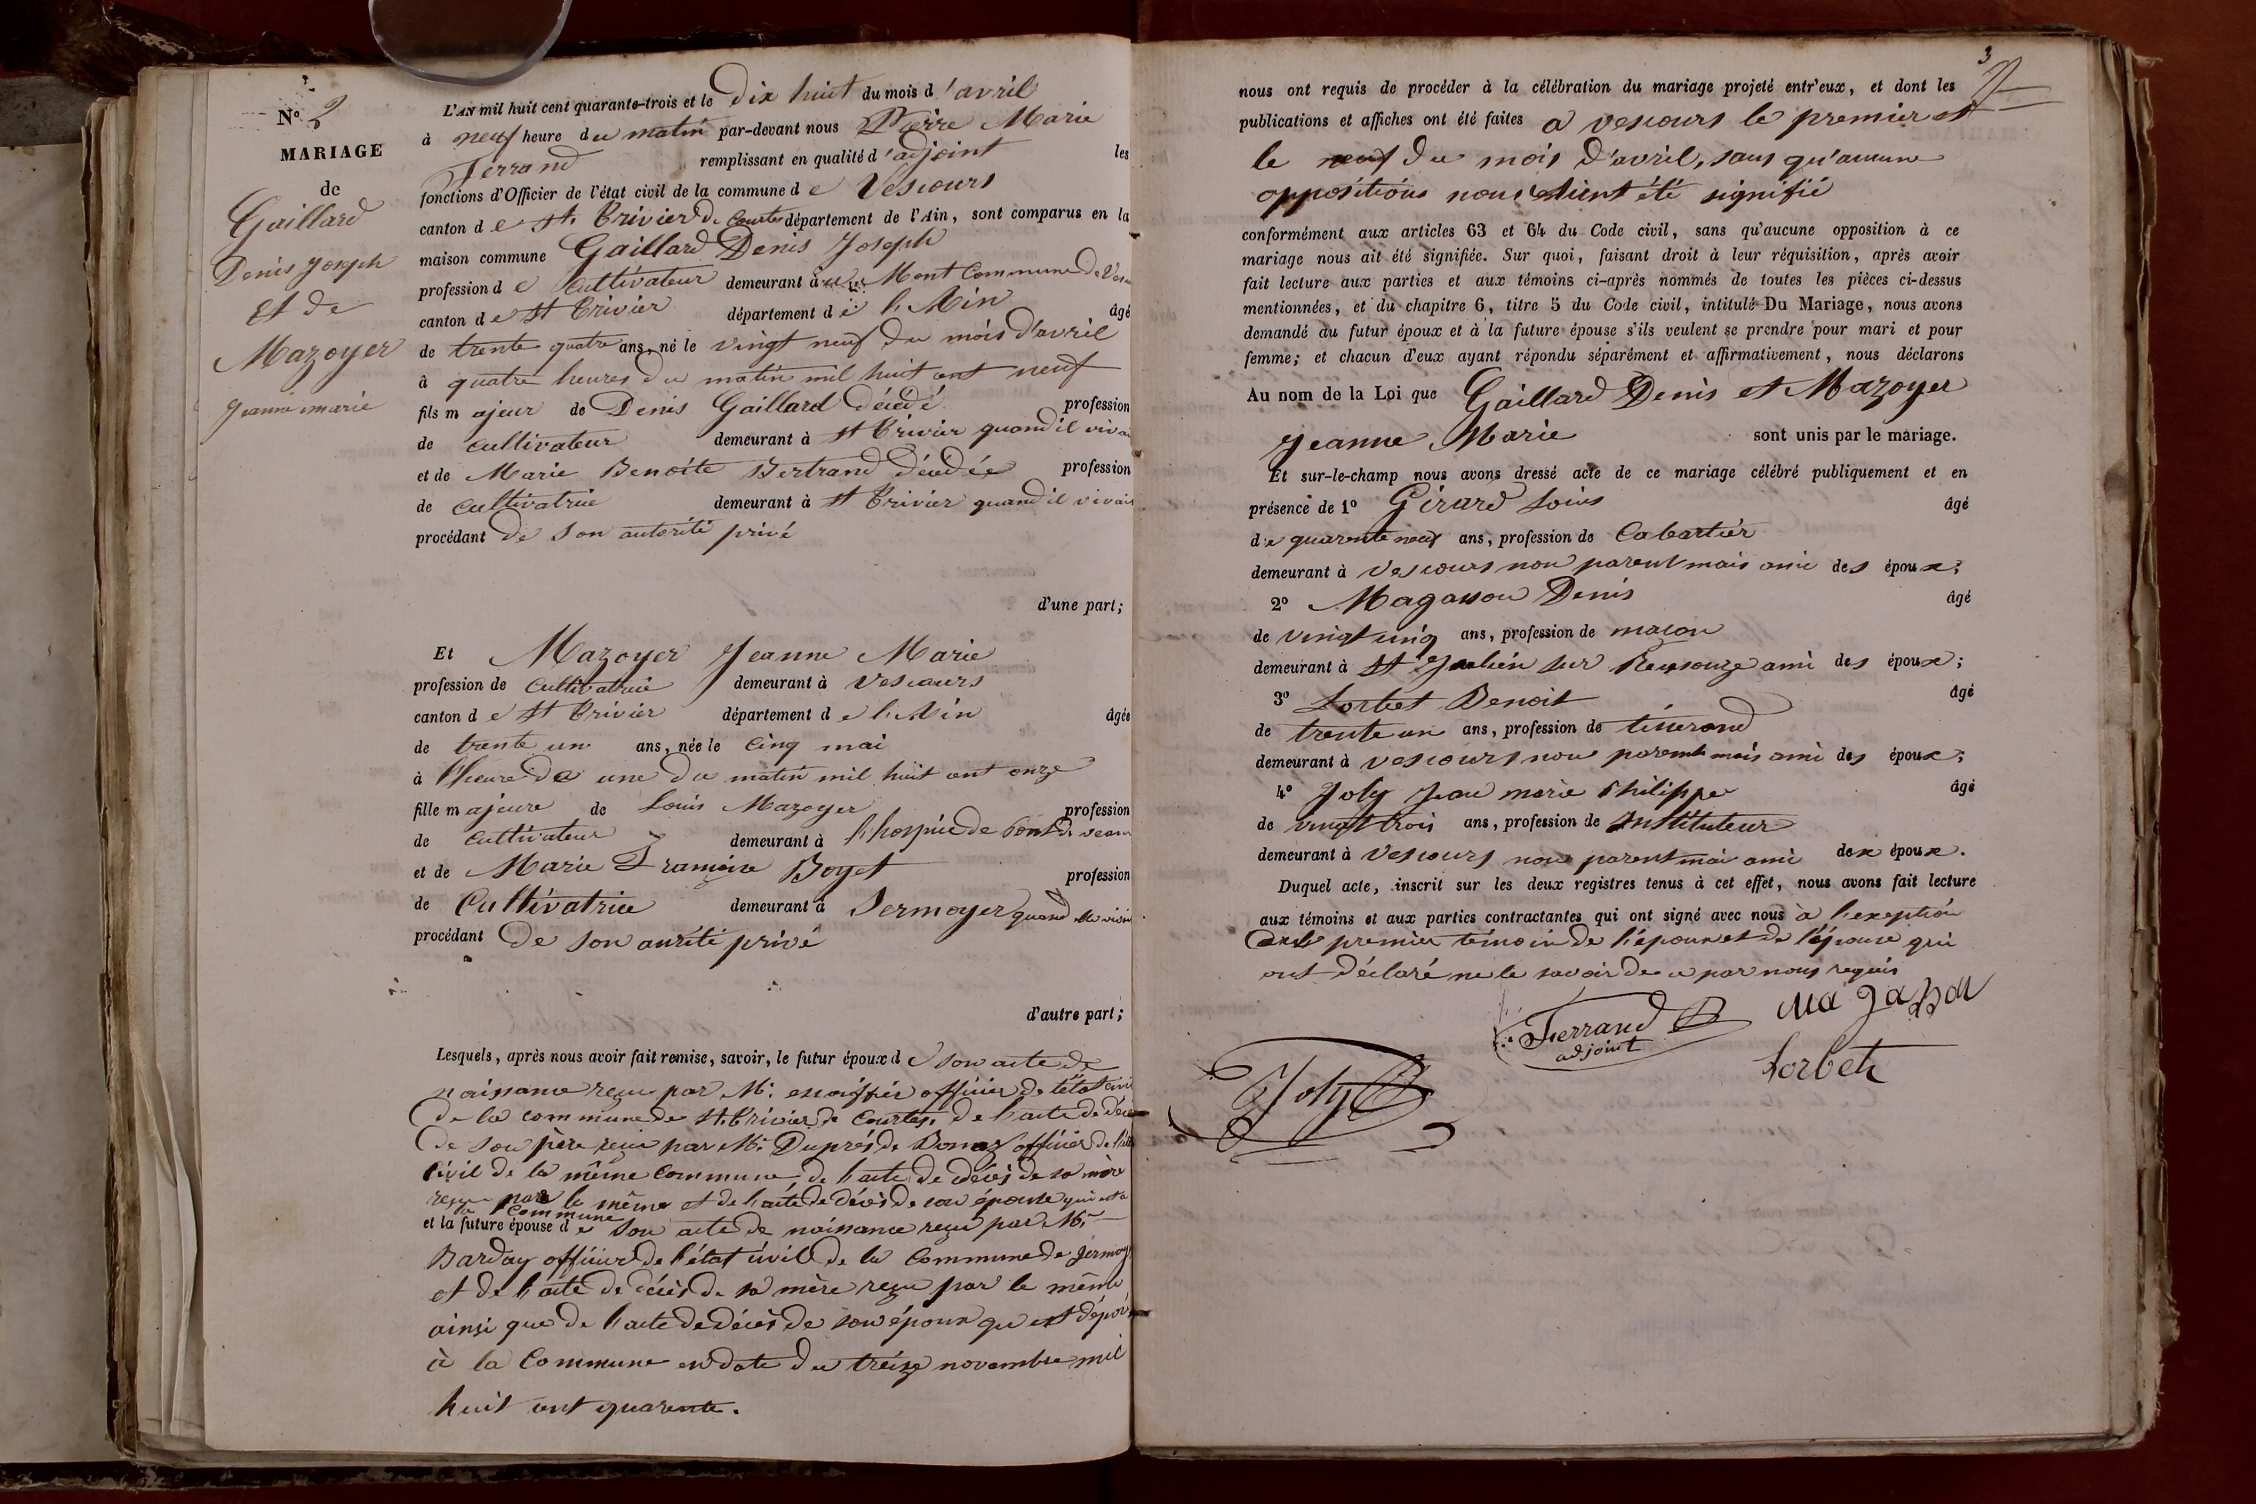 N° 2
MARIAGE
de
Gaillard
Denis Joseph
et de
Mazoyer
Jeanne marie
L'AN mil huit cent quarante-trois et le dix huit du mois d'avril
à neuf heure du matin par-devant nous Pierre Marie
Ferrand remplissant en qualité d'adjoint les
fonctions d'Officier de l'état civil de la commune de Vescours
canton de St. Trivier de Courtes département de l'Ain, sont comparus en la
maison commune Gaillard Denis Joseph
profession de Cultivateur demeurant à Mont Commune de
canton de St Trivier département de l'Ain âgé
de trente quatre ans, né le vingt neuf du mois d'avril
à quatre heures du matin mil huit cent neuf
fils majeur de Denis Gaillard décédé profession
de cultivateur demeurant à St Trivier quand il
et de Marie Benoite Bertrand décédée profession
de cultivatrice demeurant à St Trivier quand il vivait
procédant de son autorité privé
d'une part;
Et Mazoyer Jeanne Marie
profession de Cultivatrice demeurant à Vescours
canton de St Trivier département de l'Ain âgée
de trente un ans, née le cinq mai
à l'heure de une du matin mil huit cent onze
fille majeure de Louis Mazoyer profession
de cultivateur demeurant à l'hospice de Pont de
et de Marie Boyet profession
de Cultivatrice demeurant à Sermoyer quand elle
procédant de son privé
d'autre part;
Lesquels, après nous avoir fait remise, savoir, le futur époux de son acte de
naissance reçu par Mr. officier de l'état
de la commune de St. Trivier de Courtes, de l'acte de
de son père reçu par Mr. Duprés de officier de
civil de la même commune, de l'acte de décès de sa mère
reçu par le même et de l'acte de décès de son épouse qui est
la Commune
et la future épouse de son acte de naissance reçu par Mr.
Barday officier de l'état civil de la Commune de
et de l'acte de décès de sa mère reçu par le même
ainsi que de l'acte de décès de son époux qui est
à la Commune en date du treize novembre mil
huit cent quarente.
3
nous ont requis de procéder à la célébration du mariage projeté entr'eux, et dont les
publications et affiches ont été faites a vescours le premier et
le neuf du mois d'avril, sans qu'aucune
oppositions nous aient été signifié
conformément aux articles 63 et 64 du Code civil, sans qu'aucune opposition à ce
mariage nous ait été signifiée. Sur quoi, faisant droit à leur réquisition, après avoir
fait lecture aux parties et aux témoins ci-après nommés de toutes les pièces ci-dessus
mentionnées, et du chapitre 6, titre 5 du Code civil, intitulé Du Mariage, nous avons
demandé au futur époux et à la future épouse s'ils veulent se prendre pour mari et pour
femme; et chacun d'eux ayant répondu séparément et affirmativement, nous déclarons
Au nom de la Loi que Gaillard Denis et Mazoyer
Jeanne Marie sont unis par le mariage.
Et sur-le-champ nous avons dressé acte de ce mariage célébré publiquement et en
présence de 1° Girard Louis âgé
de quarente neuf ans, profession de Cabartier
demeurant à Vescours non parent mais ami des époux;
2° Magasson Denis âgé
de vingt cinq ans, profession de maçon
demeurant à St Julien sur Reyssouze ami des époux;
3° Lorbet Benoit âgé
de trente un ans, profession de tisserand
demeurant à vescours non parent mais ami des époux;
4° Joly Jean marie Philippe âgé
de vingt trois ans, profession de Instituteur
demeurant à Vescours non parent mais ami des époux.
Duquel acte, inscrit sur les deux registres tenus à cet effet, nous avons fait lecture
aux témoins et aux parties contractantes qui ont signé avec nous à l'exeption
premier témoin de l'époux et de l'épouse qui
ont déclaré ne le savoir de ce par nous requis
Ferrand
adjoint
Joly
Lorbet